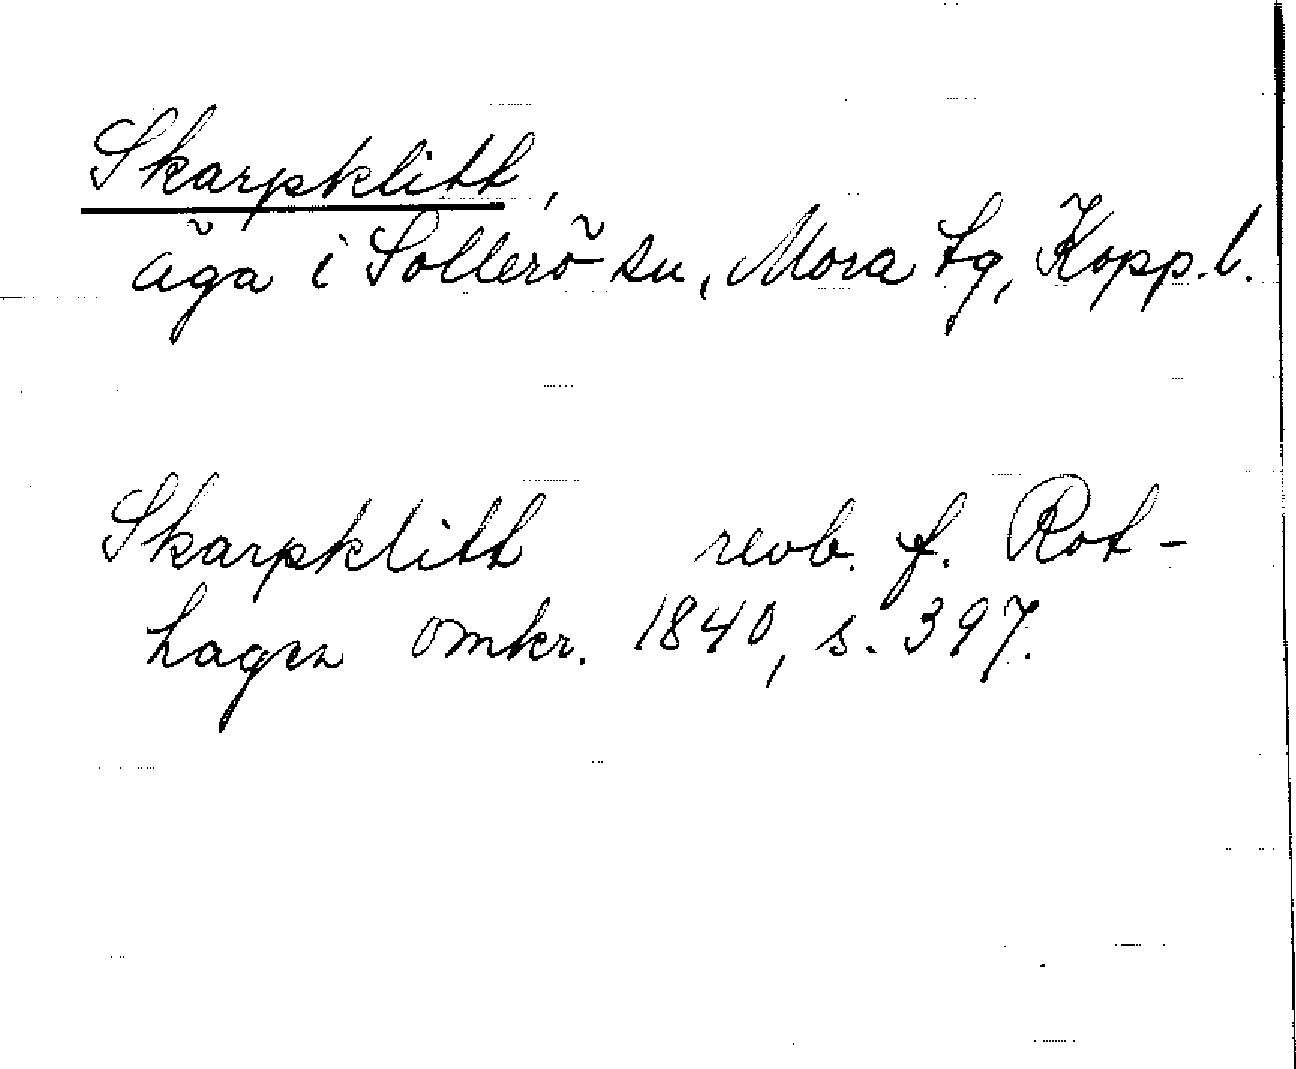 Skarpklitt,
äga i Sollerö sn, Mora tg, Kopp.l.
Skarpklitt revb. f. Rot-
hagen omkr. 1840, s. 397.